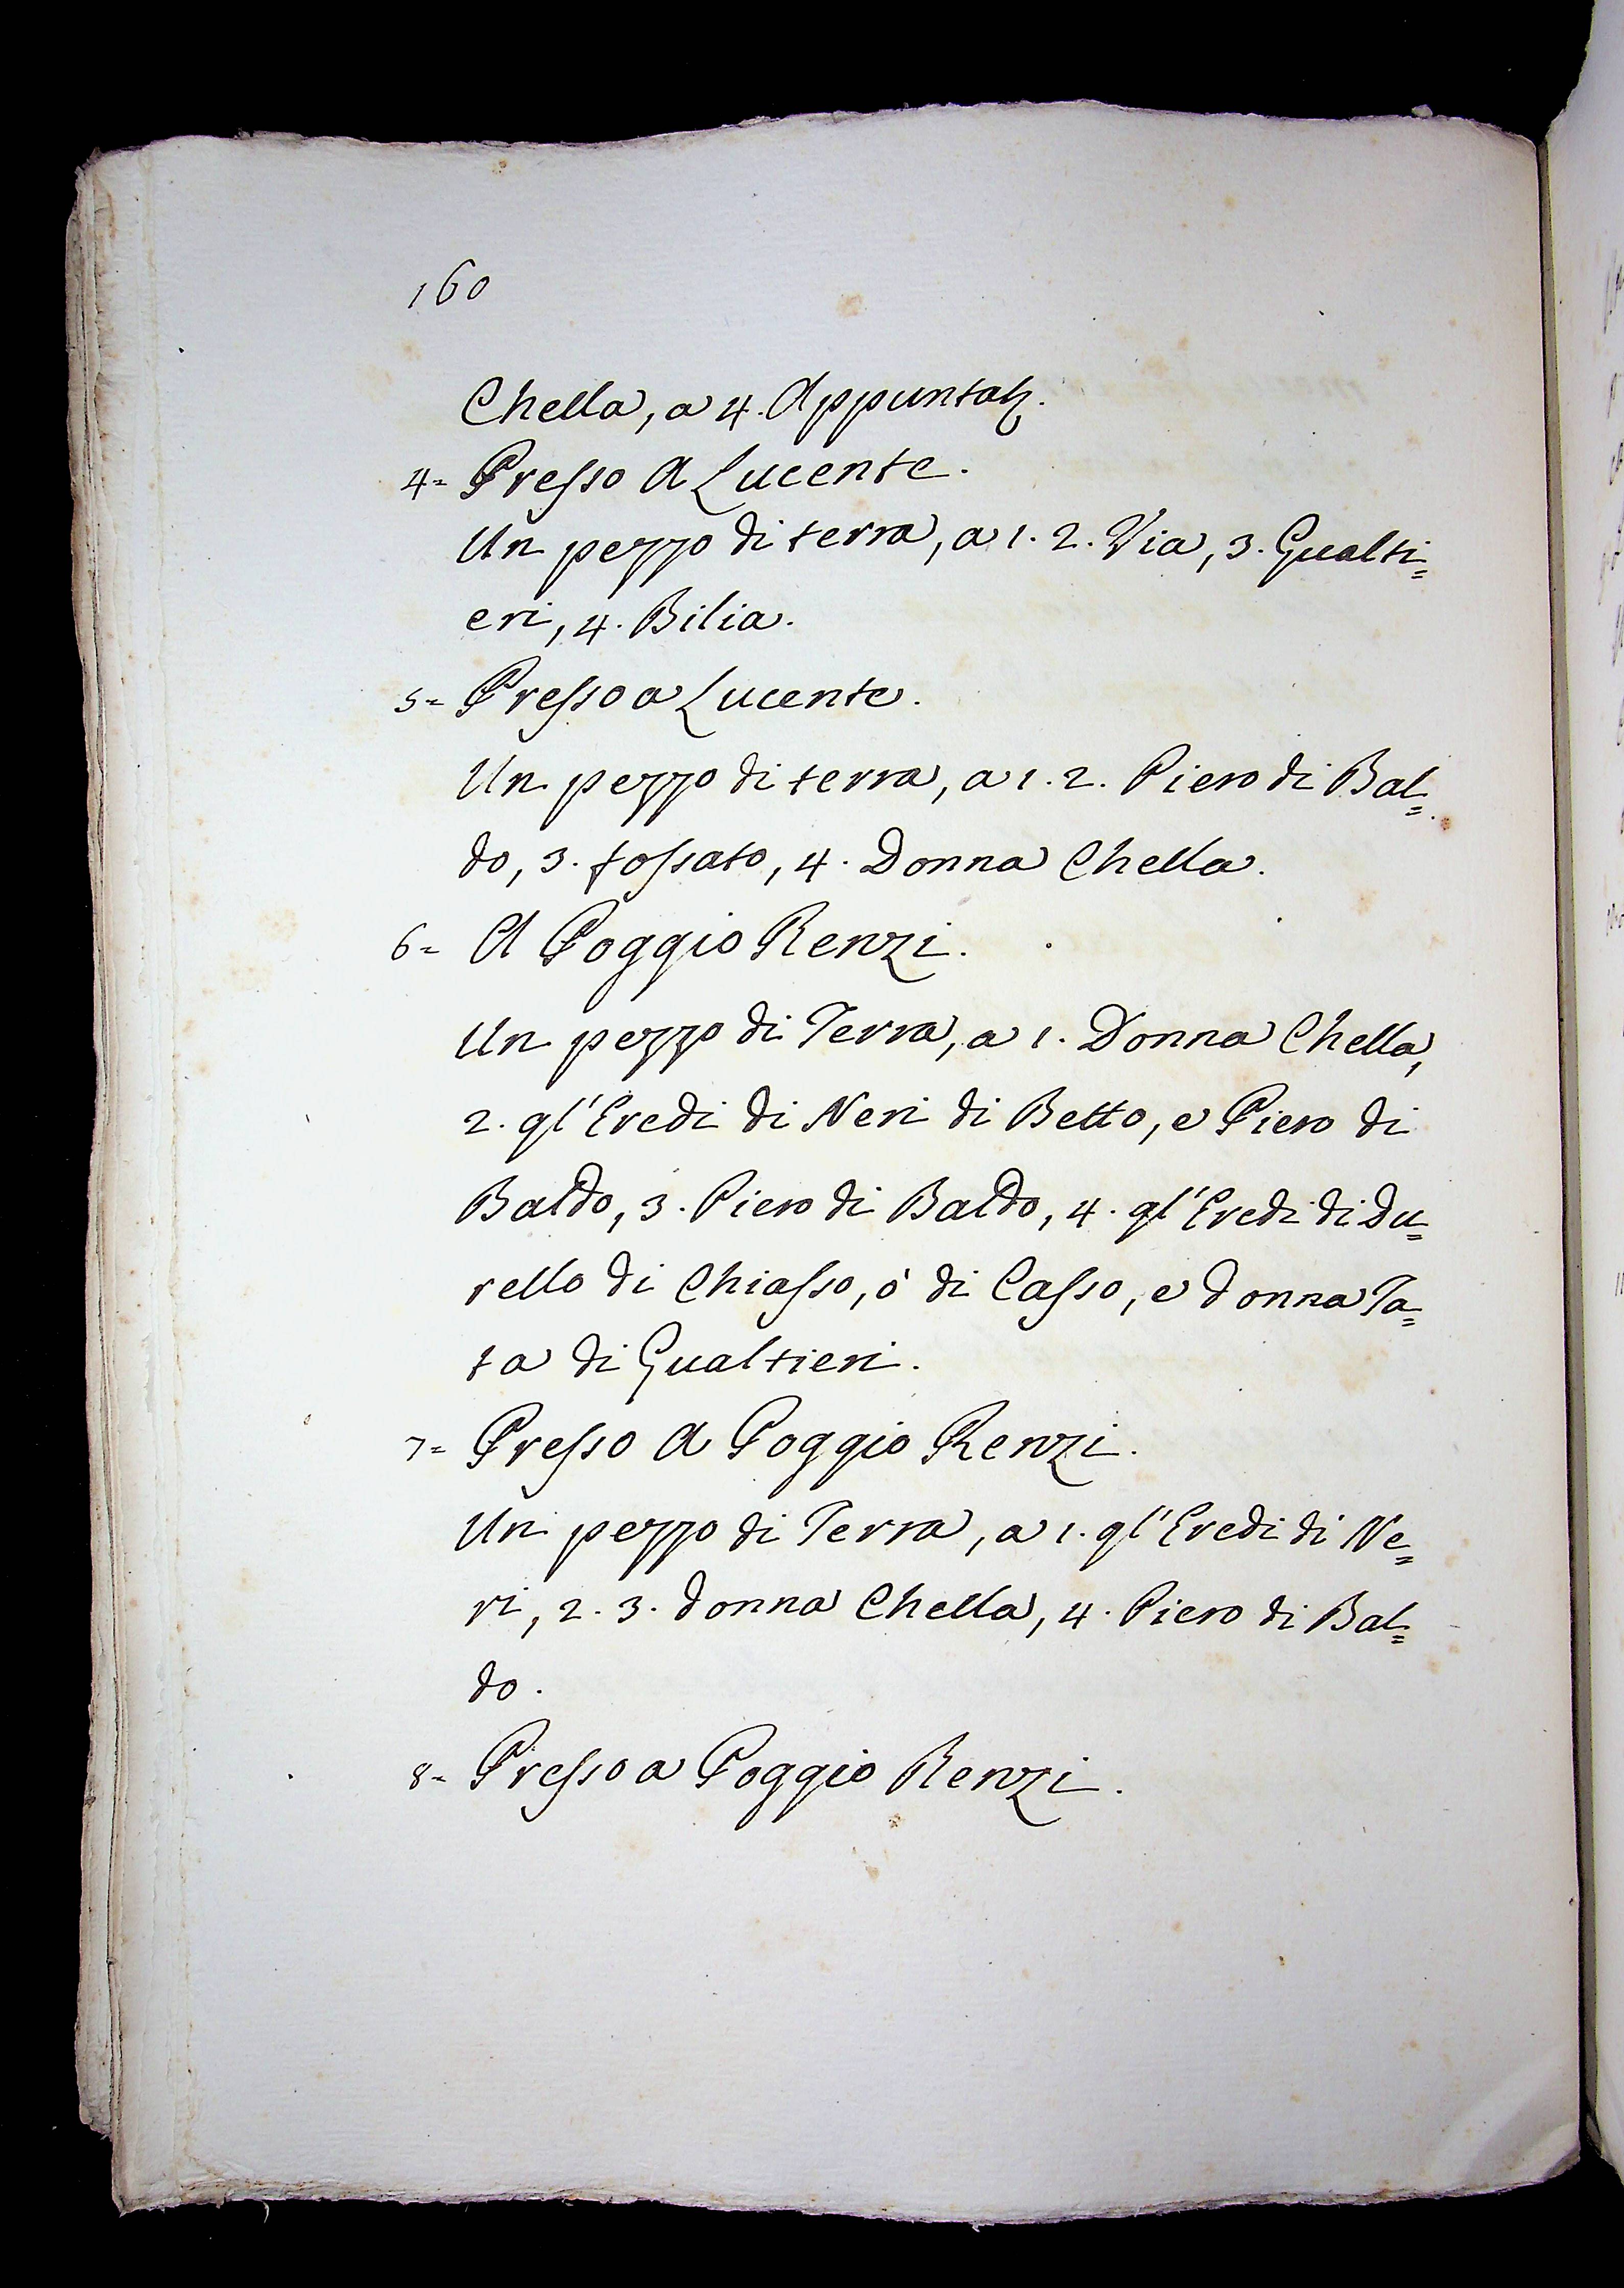 160
Chella, a 4. Appuntaḥ.
4= Presso A Lucente.
Un pezzo di terra, a 1. 2. Via, 3. Gualti=
eri, 4. Bilia.
5= Presso a Lucente.
Un pezzo di terra, a 1. 2. Piero di Bal=
do, 3. fossato, 4. Donna Chella.
6= A Poggio Renzi.
Un pezzo di Terra, a 1. Donna Chella,
2. gl'Eredi di Neri di Betto, e Piero di
Baldo, 3. Piero di Baldo, 4. gl'Eredi di Du=
rello di Chiasso, ò di Casso, e donna Ta=
ta di Gualtieri.
7= Presso A Poggio Renzi.
Un pezzo di Terra, a 1. gl'Eredi di Ne=
ri, 2. 3. donna Chella, 4. Piero di Bal=
do.
8= Presso a Poggio Renzi.